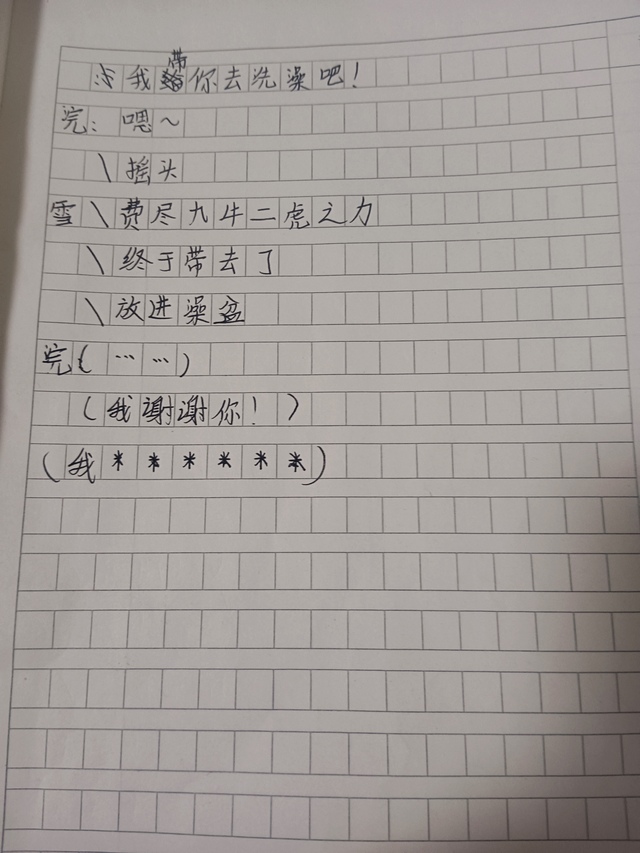 我带你去洗澡吧！
浣：嗯～
\摇头
雪\费尽九牛二虎之力
\终于带去了
\放进澡盆
浣(……)
(我谢谢你！)
(我******)